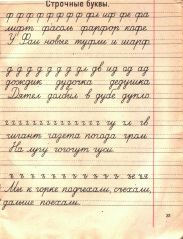 Строчные буквы.
ф ф ф ф ф ф ф ф фл иф фе фа
шарф фасоль фарфор кафе
У Фаи новые туфли и шарф.
д д д д д д д дв ид од ад
дождик дудочка дедушка
Дятел долбил в дубе дупло
г г г г г г г г г г г гу гл гв
гигант газета погода гром
На лугу гогочут гуси.
ъ ъ ъ ъ ъ ъ ъ ъ ъе ъя
Мы к горке подъехали, съехали,
дальше поехали.